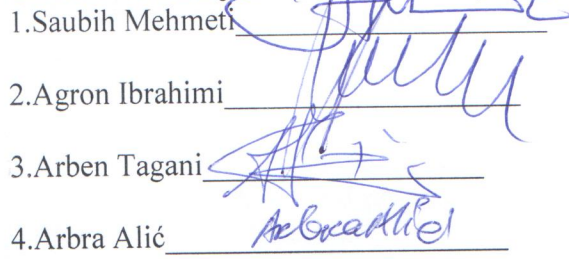 1.Saubih Mehmeti
2.Agron Ibrahimi
3.Arben Tagani
4.Arbra Alić Arbra Alić